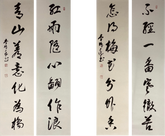 不經一番寒徹骨
怎得梅花分外香
紅雨隨心翻作浪
青山著意化為橋